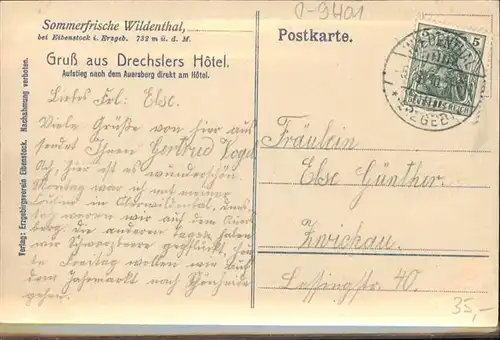 D-9401
Sommerfrische Wildenthal,
bei Eibenstock i. Erzgeb. 732 m ü. d. M.
Gruß aus Drechslers Hôtel.
Aufstieg nach dem Auersberg direkt am Hôtel.
Verlag: Erzgebirgsverein Eibenstock. Nachahmung verboten.
Postkarte.
5
DEUTSCHES REICH
WILDENTHAL
ERZGEB.
Liebes Frl. Else.
Viele Grüße von hier aus
sendet Ihnen Gertrud Vogel
Ach, hier ist es wunderschön.
Montag war ich mit meiner
in Oberwildental, Diens-
tag waren wir auf dem Auers-
berg. Die anderen Tage haben
wir Schwarzbeere gepflückt. Heu-
te Freitag wollen wir auf
dem Jahrmarkt nach Schönheide
gehen.
Fräulein
Else Günther.
Zwickau.
Lessingstr. 40.
35,-